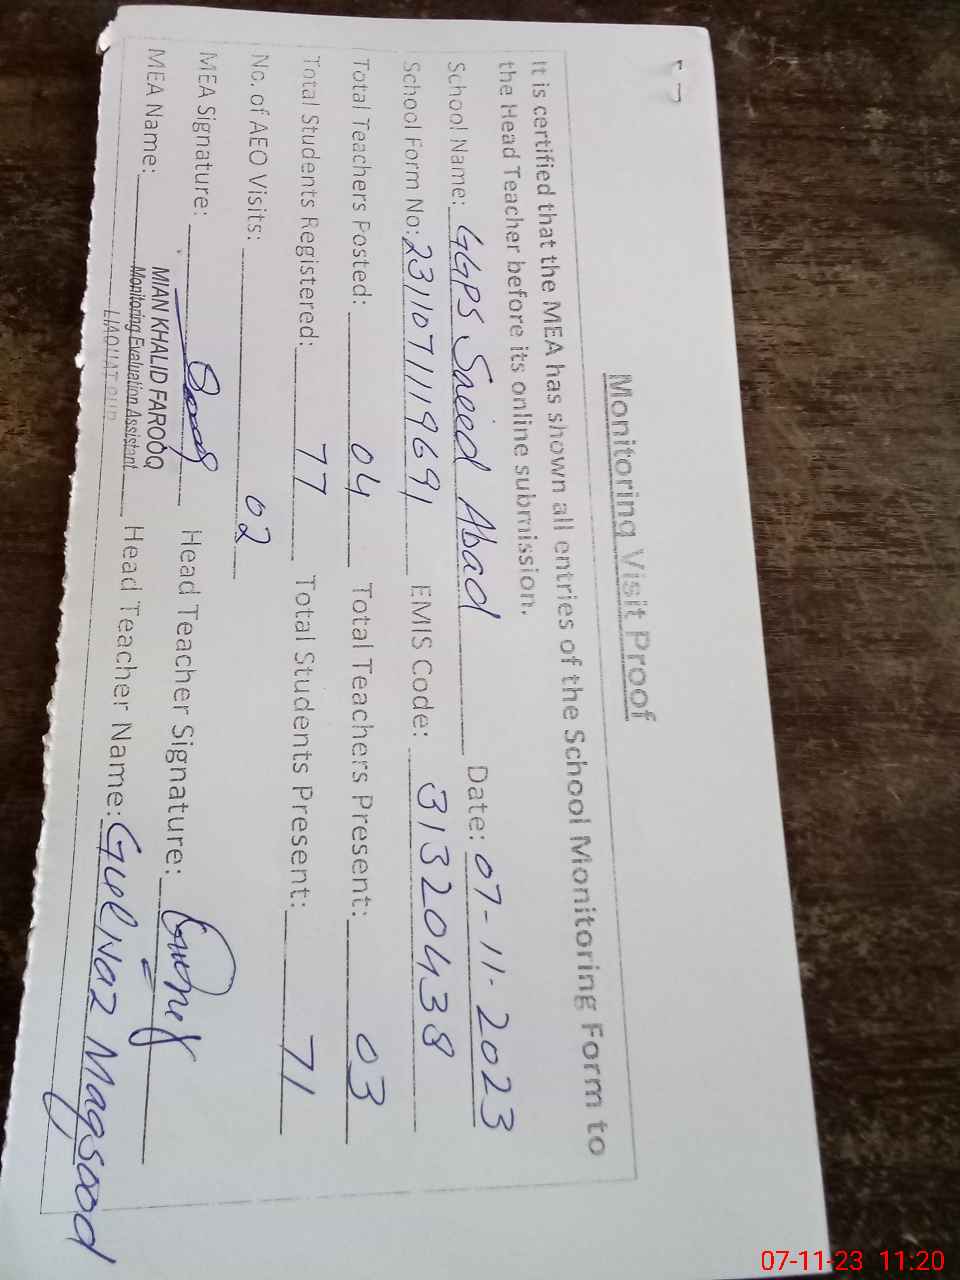 Monitoring Visit Proof
It is certified that the MEA has shown all entries of the School Monitoring Form to
the Head Teacher before its online submission.
School Name: GGPS Saeed Abad Date: 07-11-2023
School Form No: 2311071119691 EMIS Code: 31320438
Total Teachers Posted: 04 Total Teachers Present: 03
Total Students Registered: 77 Total Students Present: 71
No. of AEO Visits: 02
MEA Signature: Head Teacher Signature:
MEA Name: MIAN KHALID FAROOQ Head Teacher Name: Gulnaz Maqsood
Monitoring Evaluation Assistant
LIAQUAT PUR
07-11-23 11:20